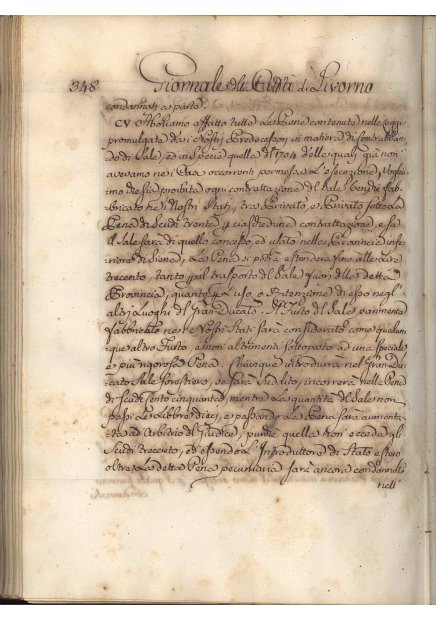 348 Giornale della Città di Livorno
condannati a parte.
CV. Aboliamo affatto tutte Le Pene contenute nelle Leggi
promulgate da i Nostri Predecessori in materia di Contrabban-
do di Sale, ed in Specie quella del 1704 delle quali già non
avevamo ne i Casi occorrenti permessa L'esecuzione, Voglia-
mo che sia proibita ogni contrattazione del Sale benche fab-
bricato ne i Nostri Stati, tra Privato, e Privato sotto La
Pena di Scudi trenta p ciascheduna contrattazione, e se
il Sale sarà di quello concesso, ed usato nella Provincia infe-
riore di Siena, La Pena si potrà estendere fino alle Lire
trecento, tanto p il trasporto del Sale fuori della detta
Provincia, quanto p L'uso, o Ritenzione di esso negl'
altri Luoghi del Gran Ducato. Il Furto del Sale parimente
fabbricato ne i Nostri Stati sarà considerato come qualun-
que altro Furto, e non altrimenti sottoposto ad una speciale
e più rigorosa Pena. Chiunque introdurrà nel Gran Du-
cato Sale forestiero, se sarà Suddito, incorrerà nella Pena
di Scudi Cento cinquanta, mentre La quantità del Sale non
passi Le Libbre dieci, e passando La Pena sarà aumenta-
ta ad Arbitrio del Giudice, purchè quella non ecceda gli
Scudi trecento, ed essendo L'Introduttore di Stato estero
oltre La detta Pena pecuniaria sarà ancora condannato
nelli